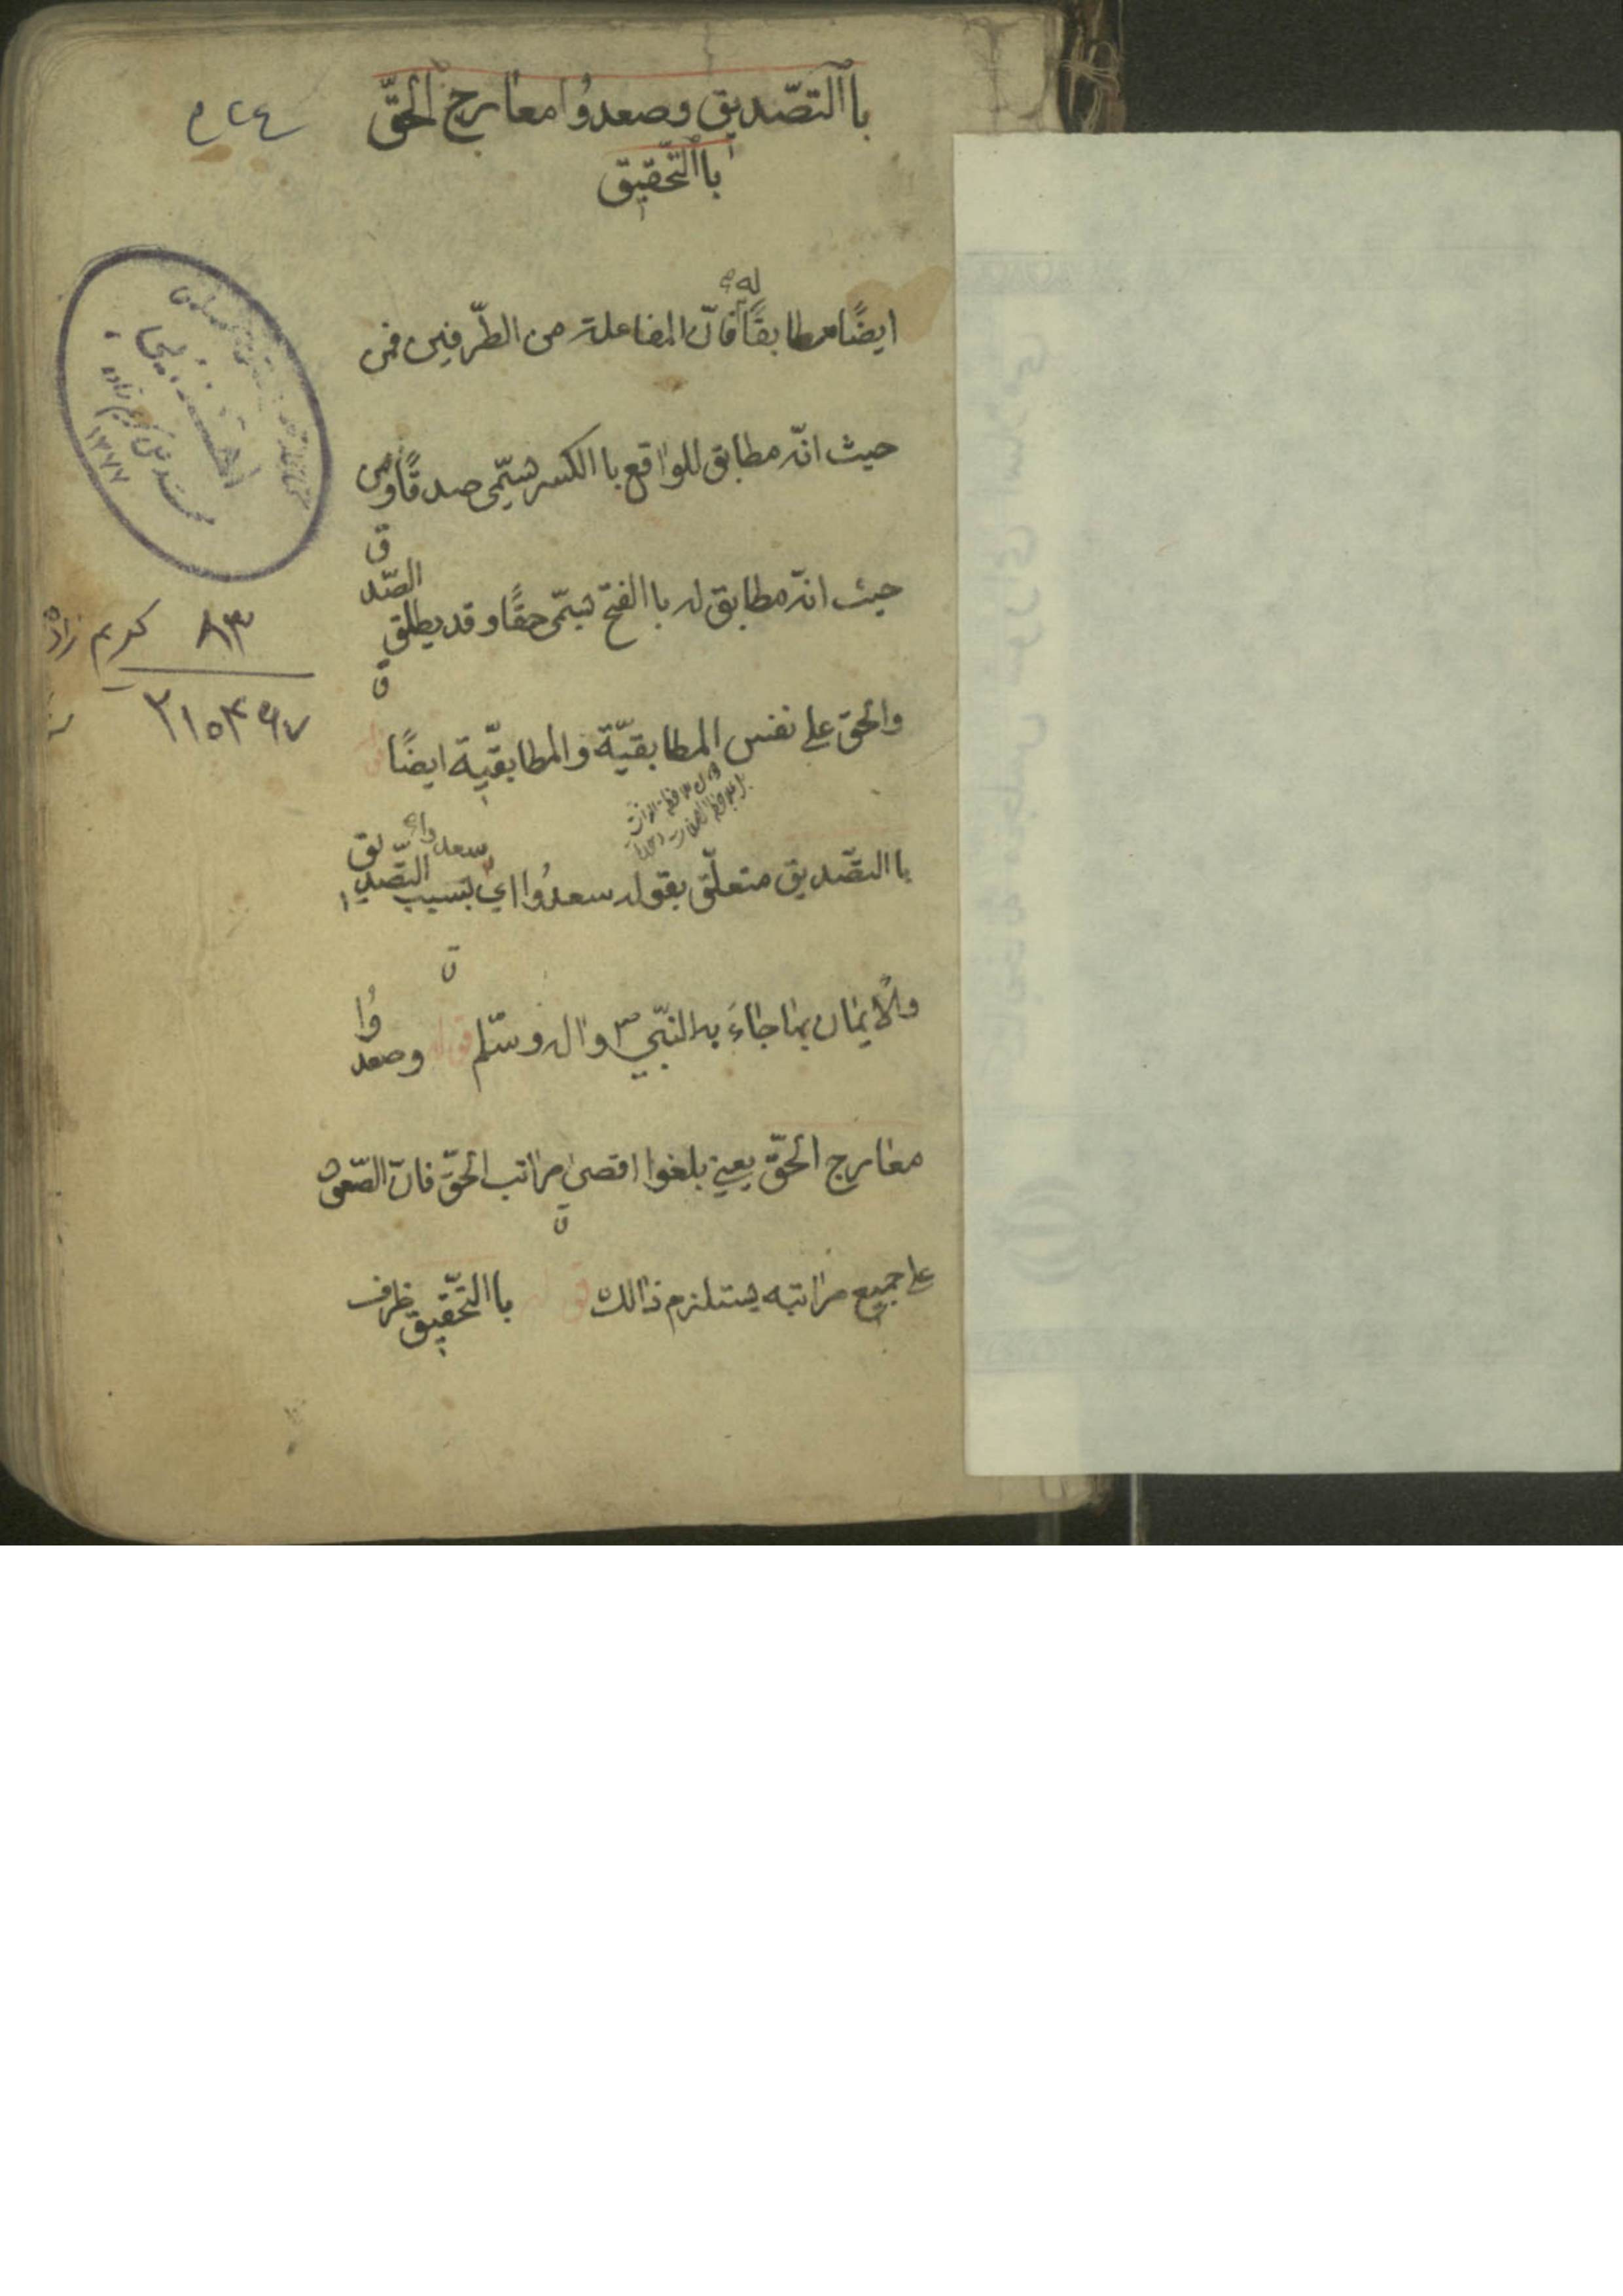 باالتصّديق وصعدوُا معارج الحقّ
باالتّحقيق
٥٢٤
له
ايضًا مطابقًا فانّ المفاعلة من الطّرفين فمن
حيث انّه مطابق للواقع باالكسر يسّمى صدقًا ومن
حيث انّه مطابق له باالفتح يسّمى حقًّا وقد يطلق الصّدق
والحقّ على نفس المطابقيّة والمطابقيّة ايضًا
باالتصّديق متعلّق بقوله سعدُوا اي بسبب التّصديق
ولايمان بما جاءَ به النبّي ص واله وسّلم قوله وصعدوُا
معارج الحقّ يعني بلغوا اقصى مراتب الحقّ فانّ الصّعود
على جميع مراتبه يستلزم ذالك قوله باالتّحقيق ظرف
كريم زاده
٨٣
١٣٧٧